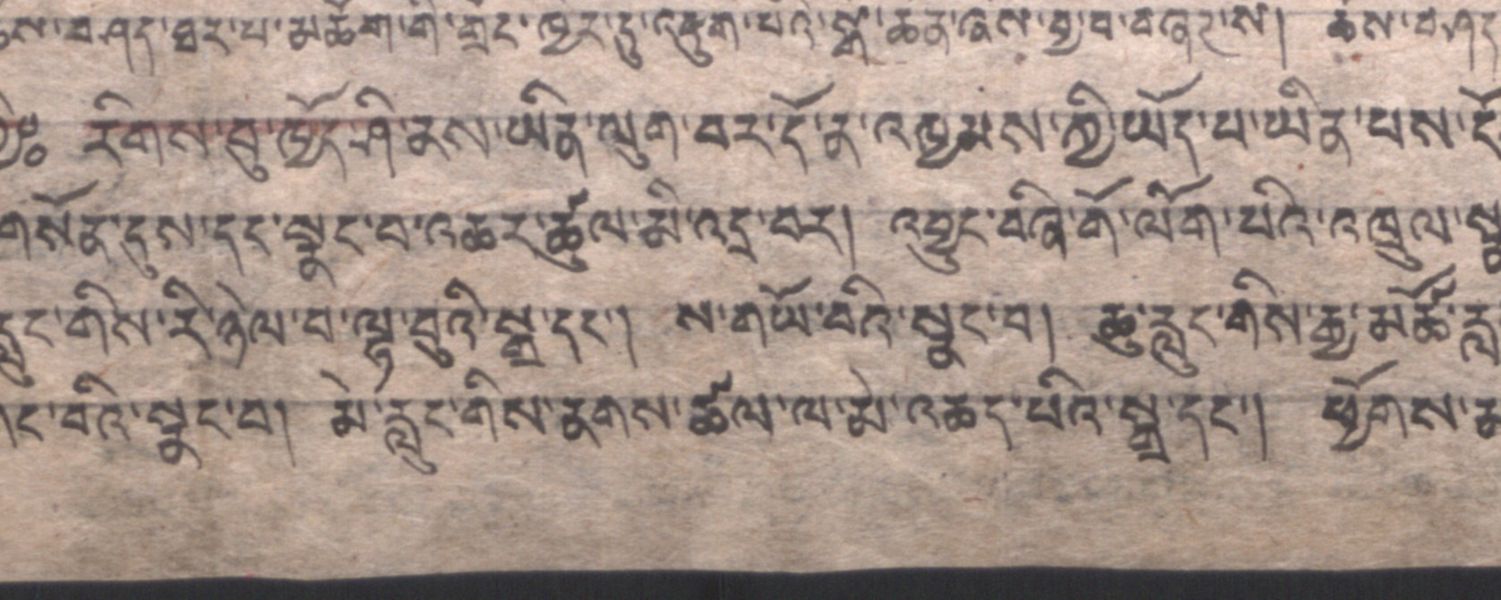 ས་བཤད་ཐར་པ་མཆོག་གི་གྲོང་ཁྱེར་དུ་འཇུག་པའི་སྒོ་ཆེན་ཞེས་བྱ་བ་བཞུགས། ཆོས་བཤད
རིགས་བུ་ཁྱོད་ཤི་ནས་ཡིན་ལུག་བར་དོ་ན་འཁྱམས་ཀྱི་ཡོད་པ་ཡིན་པས་དོ
གསོན་དུས་དང་སྣང་བ་འཆར་ཚུལ་མི་འདྲ་བར། འབྱུང་བཞི་གོ་ལོག་པའི་འཁྲུལ་སྣ
རླུང་གིས་རི་ཉིལ་བ་ལྟ་བུའི་སྒྲ་དང་། ས་གཡོ་བའི་སྣང་བ། ཆུ་རླུང་གིས་རྒྱ་མཚོ་རླ
བའི་སྣང་བ། མེ་རླུང་གིས་ནགས་ཚལ་ལ་མེ་འཆད་པའི་སྒྲ་དང་། ཕྱོགས་མ